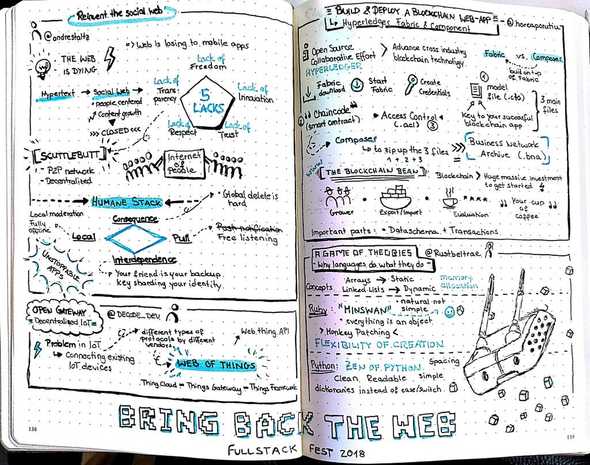 Reinvent the social web
@andrestaltz
THE WEB
IS DYING
Web is losing to mobile apps
Hypertext
Social Web
people centered
Content growth
>>> CLOSED <<<
Lack of
Freedom
Lack of
Transparency
5
LACKS
Lack of
Innovation
Lack of
Respect
Lack of
Trust
[SCUTTLEBUTT]
- P2P network
- Decentralized
Internet
of
people
HUMANE STACK
Global delete is
hard
Local moderation
Fully
offline
Consequence
Local
Pull
Push notification
Free listening
Interdependence
Your friend is your backup
key sharding your identity.
UNSTOPPABLE
APPS
OPEN GATEWAY
= Decentralized IoT =
@DECODE_DEV
Problem in IoT
Connecting existing
IoT devices
different types of
protocols by different
vendors
Web thing API
WEB OF THINGS
Thing Cloud = Things Gateway = Things Framework
= BUILD & DEPLOY A BLOCKCHAIN WEB-APP =
Hyperledger Fabric & Component
Open Source
Collaborative Effort
HYPERLEDGER
Advance cross industry
blockchain technology
Fabric vs. Composer
build on top
of Fabric
Fabric
download
Start
Fabric
Create
Credentials
model
file (.cto)
3 main
files
Chaincode
(smart contract)
Access Control
(.acl)
Key to your successful
blockchain app
Composer
to zip up the 3 files
1 + 2 + 3
Business Network
Archive (.bna)
[THE BLOCKCHAIN BEAN]
Blockchain > Huge massive investment
to get started
Grower
Export/Import
Evaluation
Your cup
of
coffee
Important parts: + Dataschema + Transactions
A GAME OF THEORIES
@Rustbeltrae
Why languages do what they do
Concepts
Arrays → Static
Linked Lists → Dynamic
memory
allocation
Ruby:
"MINSWAN"
natural not
simple
everything is an object
> Monkey Patching <
FLEXIBILITY OF CREATION
Python: ZEN OF PYTHON
Spacing
Clean, Readable simple
dictionaries instead of case/switch.
BRING BACK THE WEB
FULLSTACK FEST 2018